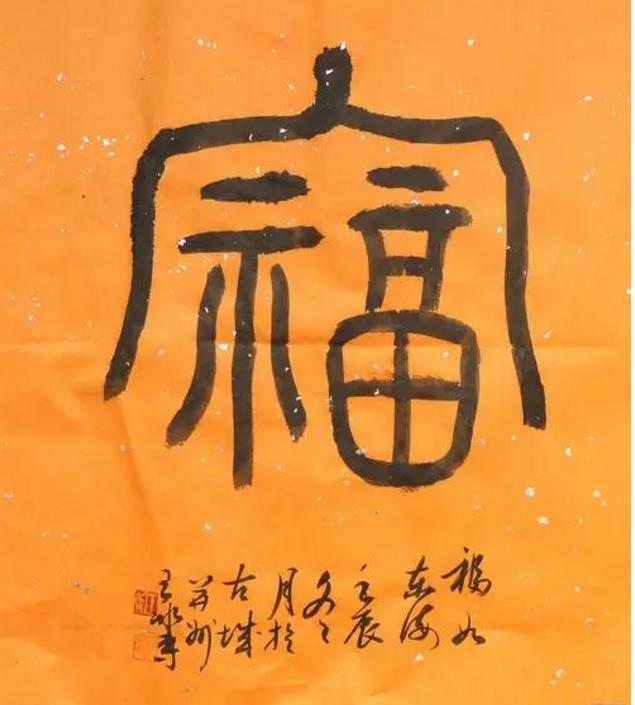 福
福如
东海
壬辰
冬
月於
古城
并州
王